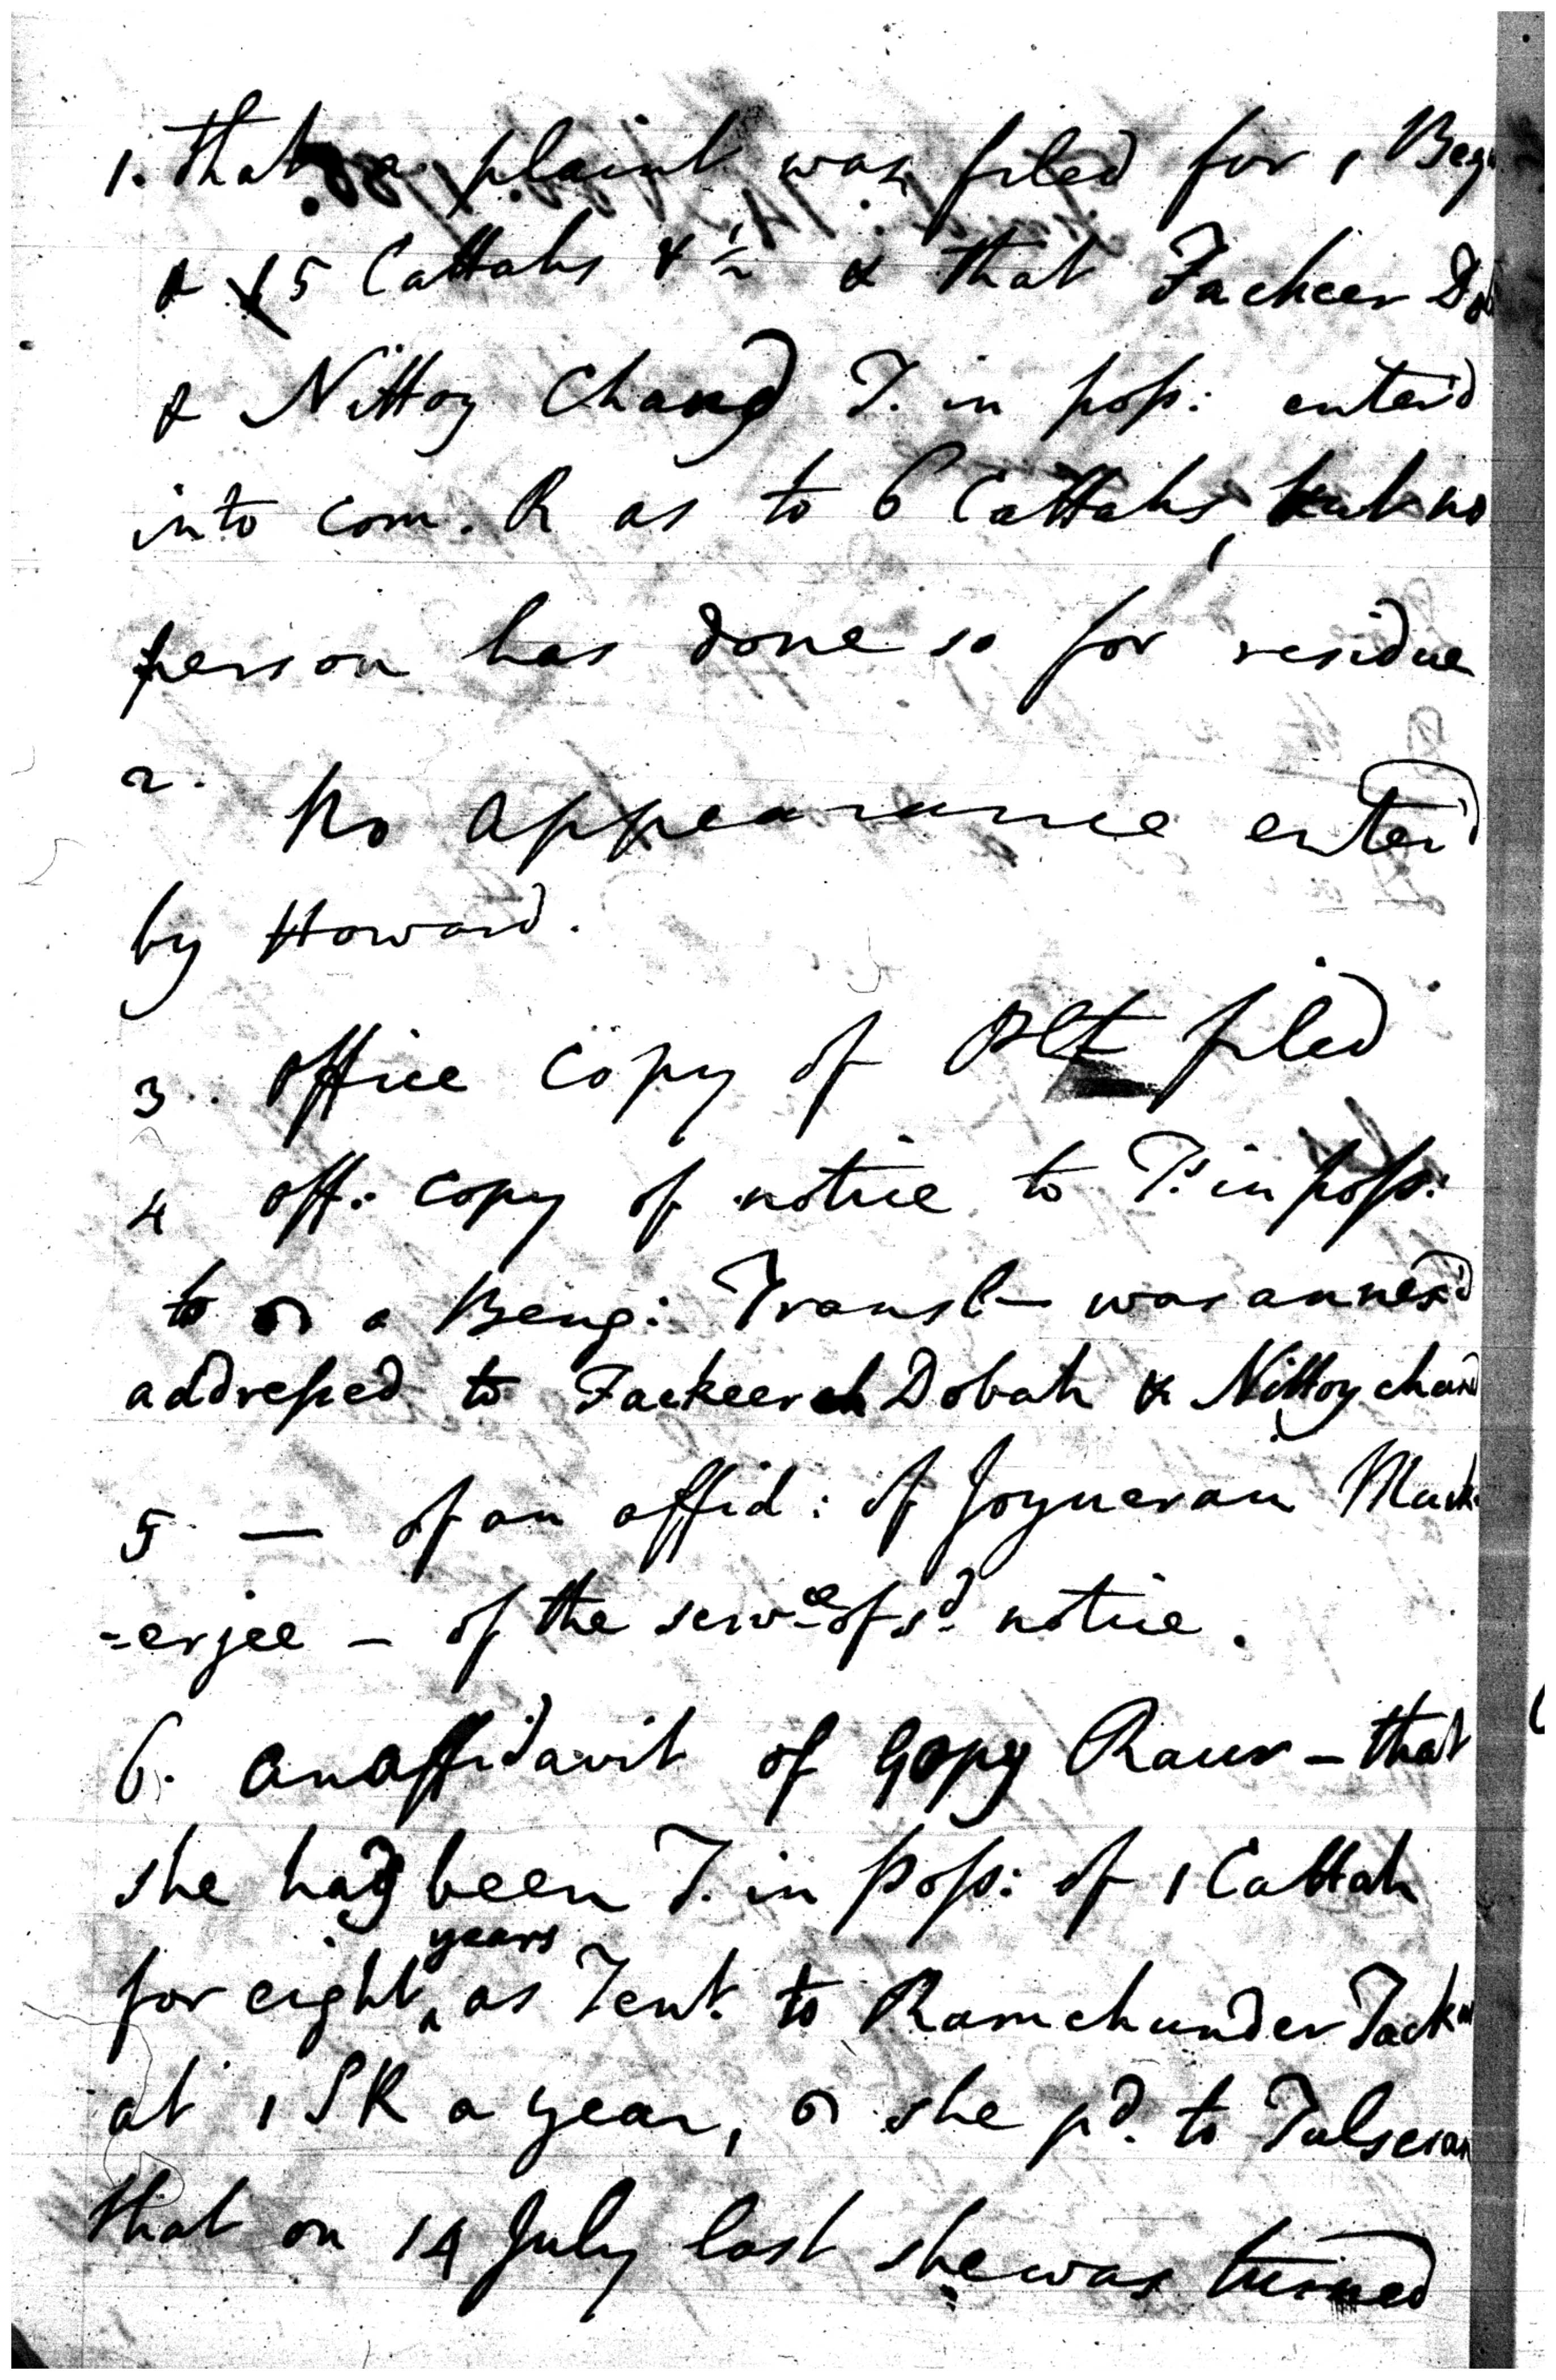 1. That a plaint was filed for 1 Beg
& 15 Cattahs & ½ & that Fackeer Dob
& Nittoy Chand T. in poss: enter'd
into com. R as to 6 Cattahs, but no
person has done so for residue
2. No appearance enter'd
by Howard.
3. Office copy of Plt filed
4 off: copy of notice to T. in poss:
to a Beng: Transl– was annex'd
addressed to Fackeer Dobah & Nittoy chand
5. — of an affid: of Joynerain Mook
-erjee – of the servce of sd. notice.
6. an affidavit of Gopy Raur – that
she had been T. in poss: of 1 Cattah
for eight years as Tent. to Ramchunder Tack
at 1 SR a year, she pd. to Tulseran
that on 14 July last she was turned